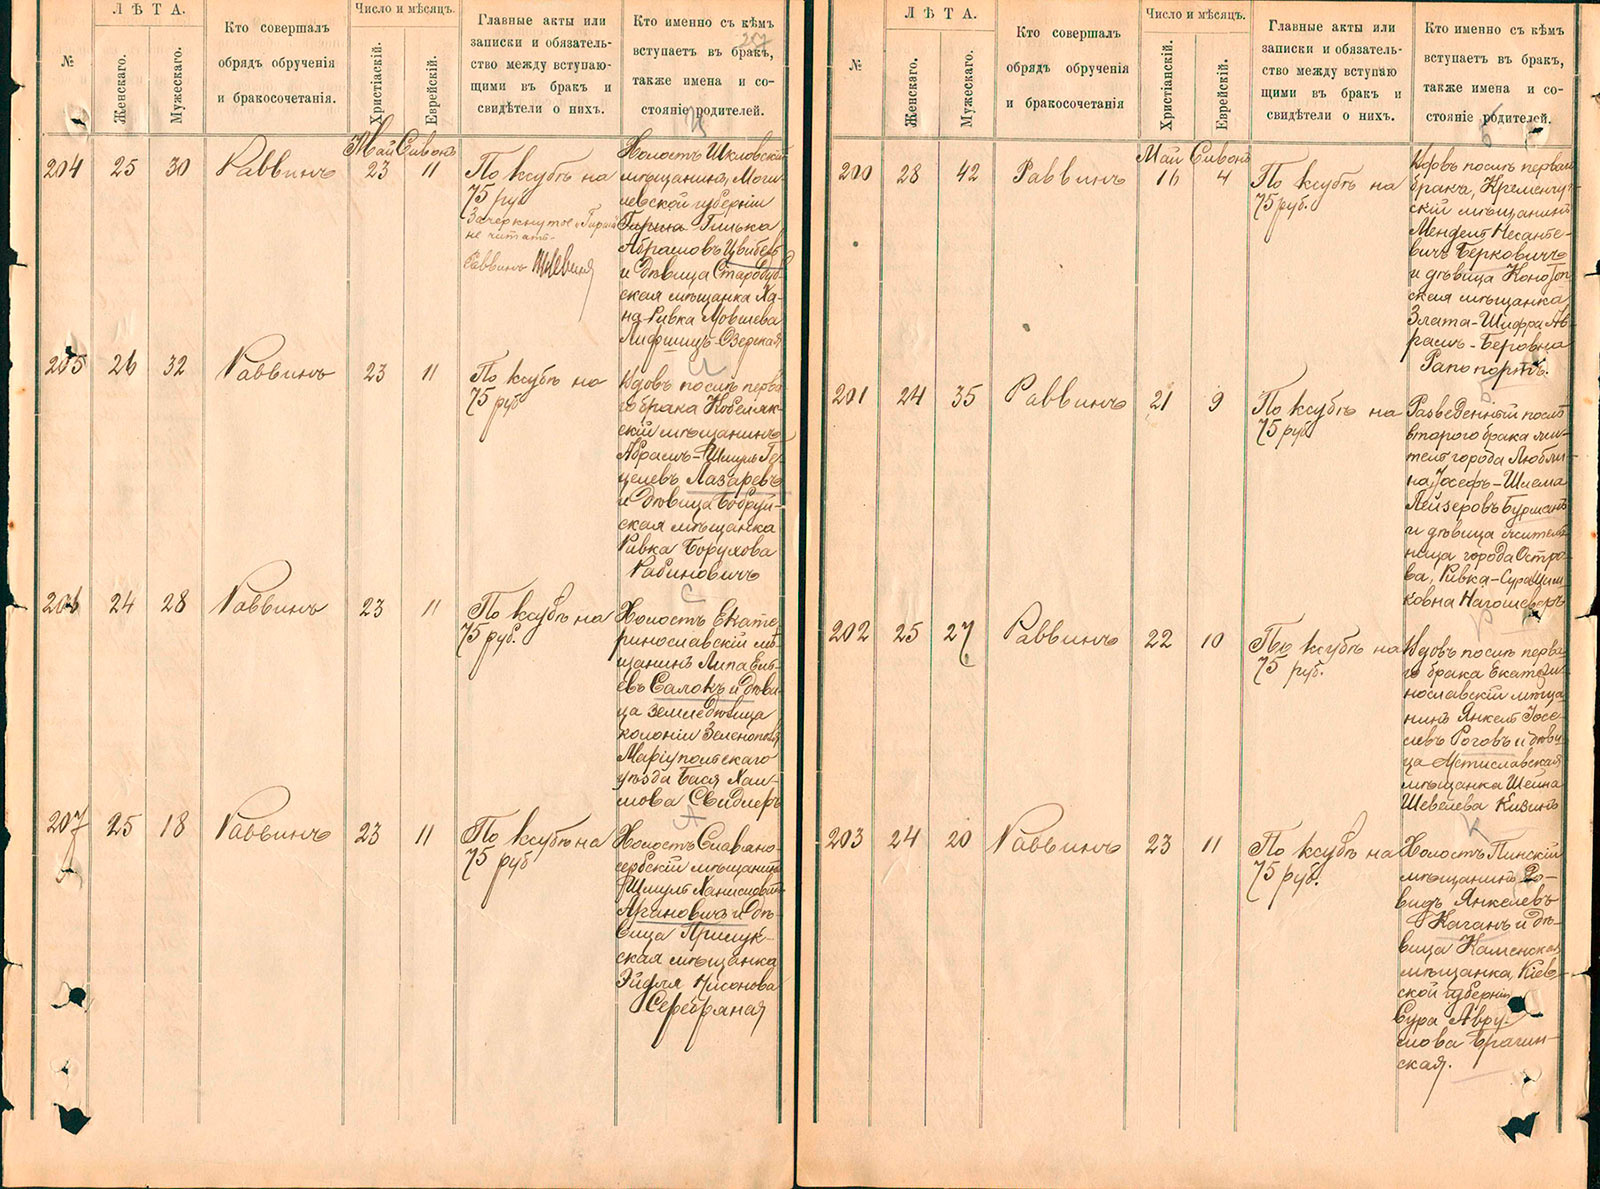 ЛѢТА.
№
Женскаго.
Мужескаго.
Кто совершалъ
обрядъ обрученія
и бракосочетанія.
Число и мѣсяцъ.
Христіаскій.
Еврейскій.
Главные акты или
записки и обязатель-
ство между вступаю-
щими въ бракъ и
свидѣтели о нихъ.
Кто именно съ кѣмъ
вступаетъ въ бракъ,
также имена и со-
стояніе родителей.
204
25
30
Раввинъ
Май
23
Сивонъ
11
По ксубѣ на
75 руб
Зачеркнутое
не читать
Раввинъ
Холостъ Шкловскій
мѣщанинъ, Моги-
левской губерніи
Гирша Гилька
Абрамовъ
и дѣвица Стародуб-
ская мѣщанка Ха-
на-Ривка Мовшева
Лифшицъ-Озерская
205
26
32
Раввинъ
23
11
По ксубѣ на
75 руб
Вдовъ послѣ перва-
го брака Кобеляк-
скій мѣщанинъ
Абрамъ-Шмуль Ге-
целевъ Лазаревъ
и дѣвица Бобруй-
ская мѣщанка
Ривка Борухова
Рабиновичъ
206
24
28
Раввинъ
23
11
По ксубѣ на
75 руб.
Холостъ Екате-
ринославскій мѣ-
щанинъ Липа
Салокъ и дѣви-
ца земледѣлица
колоніи Зеленополя
Маріупольскаго
уѣзда Бася Хаи-
мова Свидлеръ
207
25
18
Раввинъ
23
11
По ксубѣ на
75 руб
Холостъ Славяно-
сербскій мѣщанинъ
Шмуль
Ариновичъ и дѣ-
вица Прилук-
ская мѣщанка
Эйдля Нисонова
Серебряная
ЛѢТА.
№
Женскаго.
Мужескаго.
Кто совершалъ
обрядъ обрученія
и бракосочетанія
Число и мѣсяцъ.
Христіанскій.
Еврейскій.
Главные акты или
записки и обязатель-
ство между вступаю
щими въ бракъ и
свидѣтели о нихъ.
Кто именно съ кѣмъ
вступаетъ въ бракъ,
также имена и со-
стояніе родителей.
200
28
42
Раввинъ
Май
16
Сивонъ
4
По ксубѣ на
75 руб.
Вдовъ послѣ перваго
брака, Кременчуг-
скій мѣщанинъ
Мендель Несанеле-
вичъ Берковичъ
и дѣвица Конотоп-
ская мѣщанка
Злата-Шифра Ав-
рамъ-Беровна
Рапопортъ.
201
24
35
Раввинъ
21
9
По ксубѣ на
75 руб
Разведенный послѣ
второго брака жи-
тель города Любли-
на, Іосефъ-Шлема
Лейзеровъ
и дѣвица житель-
ница города Остро-
ва, Ривка-Сура
202
25
27
Раввинъ
22
10
По ксубѣ на
75 руб.
Вдовъ послѣ перва-
го брака Екатери-
нославскій мѣща-
нинъ Янкель Іосе-
левъ Роговъ и дѣви-
ца Мстиславская
мѣщанка Шейна
Шевелева Кизинъ
203
24
20
Раввинъ
23
11
По ксубѣ на
75 руб.
Холостъ Пинскій
мѣщанинъ До-
видъ Янкелевъ
Каганъ и дѣ-
вица Каменская
мѣщанка, Кіев-
ской губерніи
Сура Авру-
мова Брагин-
ская.